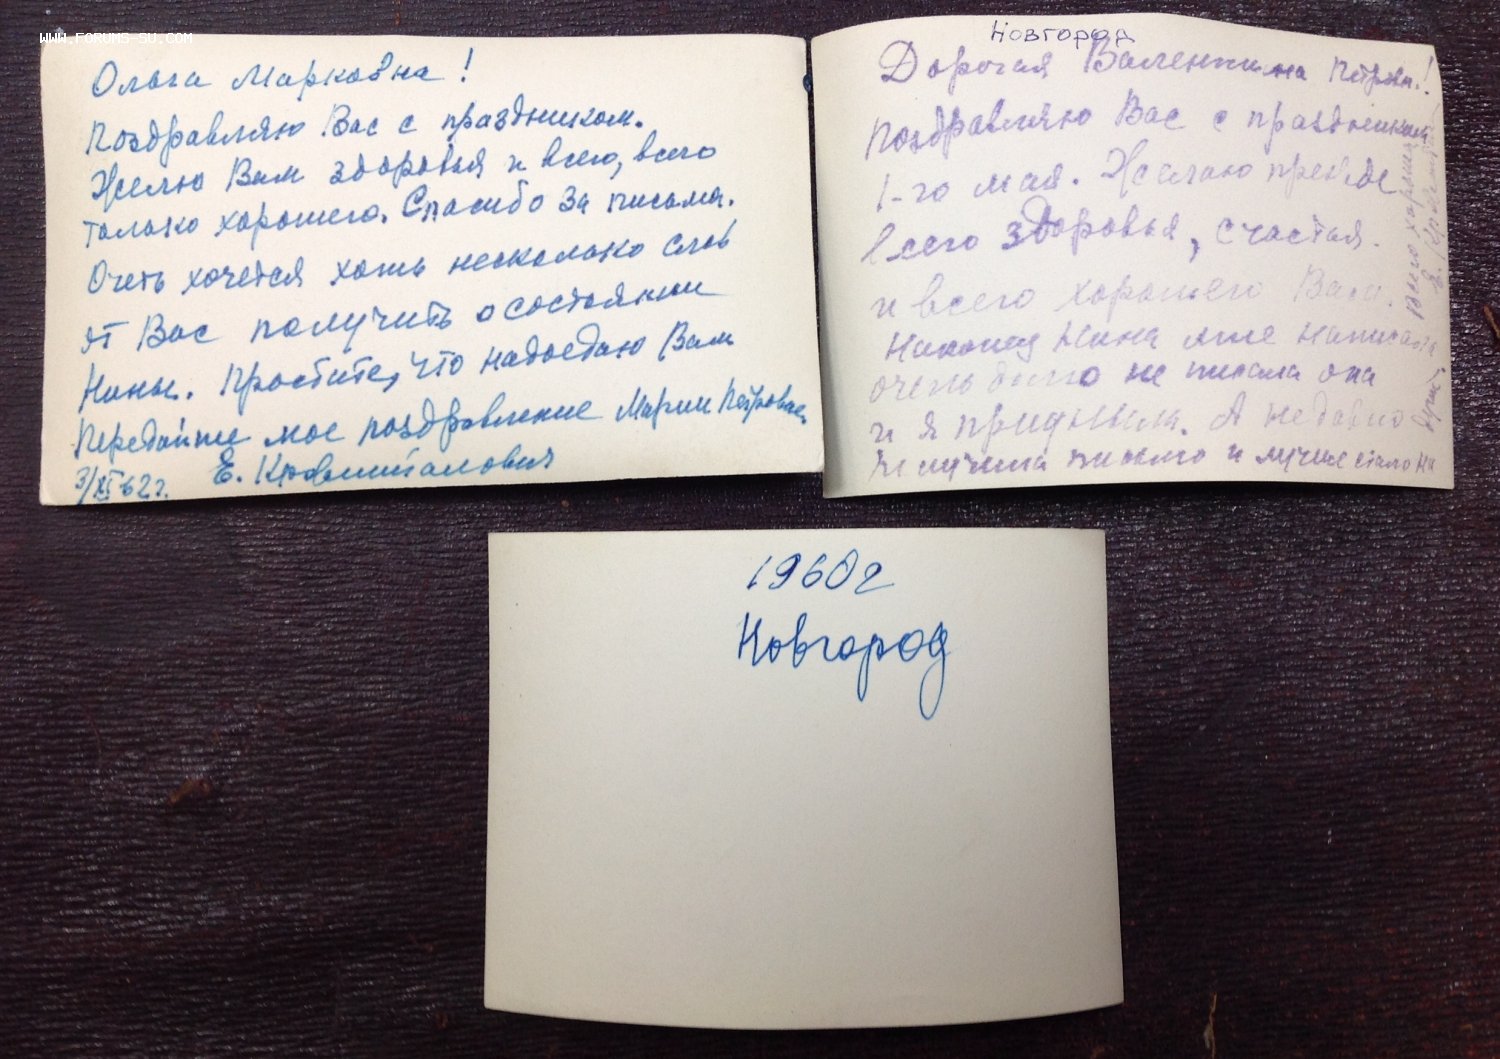 WWW.FORUMS-SU.COM
Ольга Марковна!
Поздравляю Вас с праздником.
Желю Вам здоровья и всего, всего
только хорошего. Спасибо за письма.
Очеть хочется хоть несколько слов
от Вас получить о состоянии
Нины. Простите, что надоедаю Вам
Передайте мое поздравление Марии Петровне
3/XI 62 г. Е.
Новгород
Дорогая Валентина Петровн.!
Поздравляю Вас с праздником
1-го мая. Желаю прежде
всего здоровья, счастья.
и всего хорошего Вам.
Наконец Нина мне написала
очень долго не писала она
и я приуныла. А недавно
получила письмо и лучше стало на
Всего хорошего
Е.
1960г
Новгород